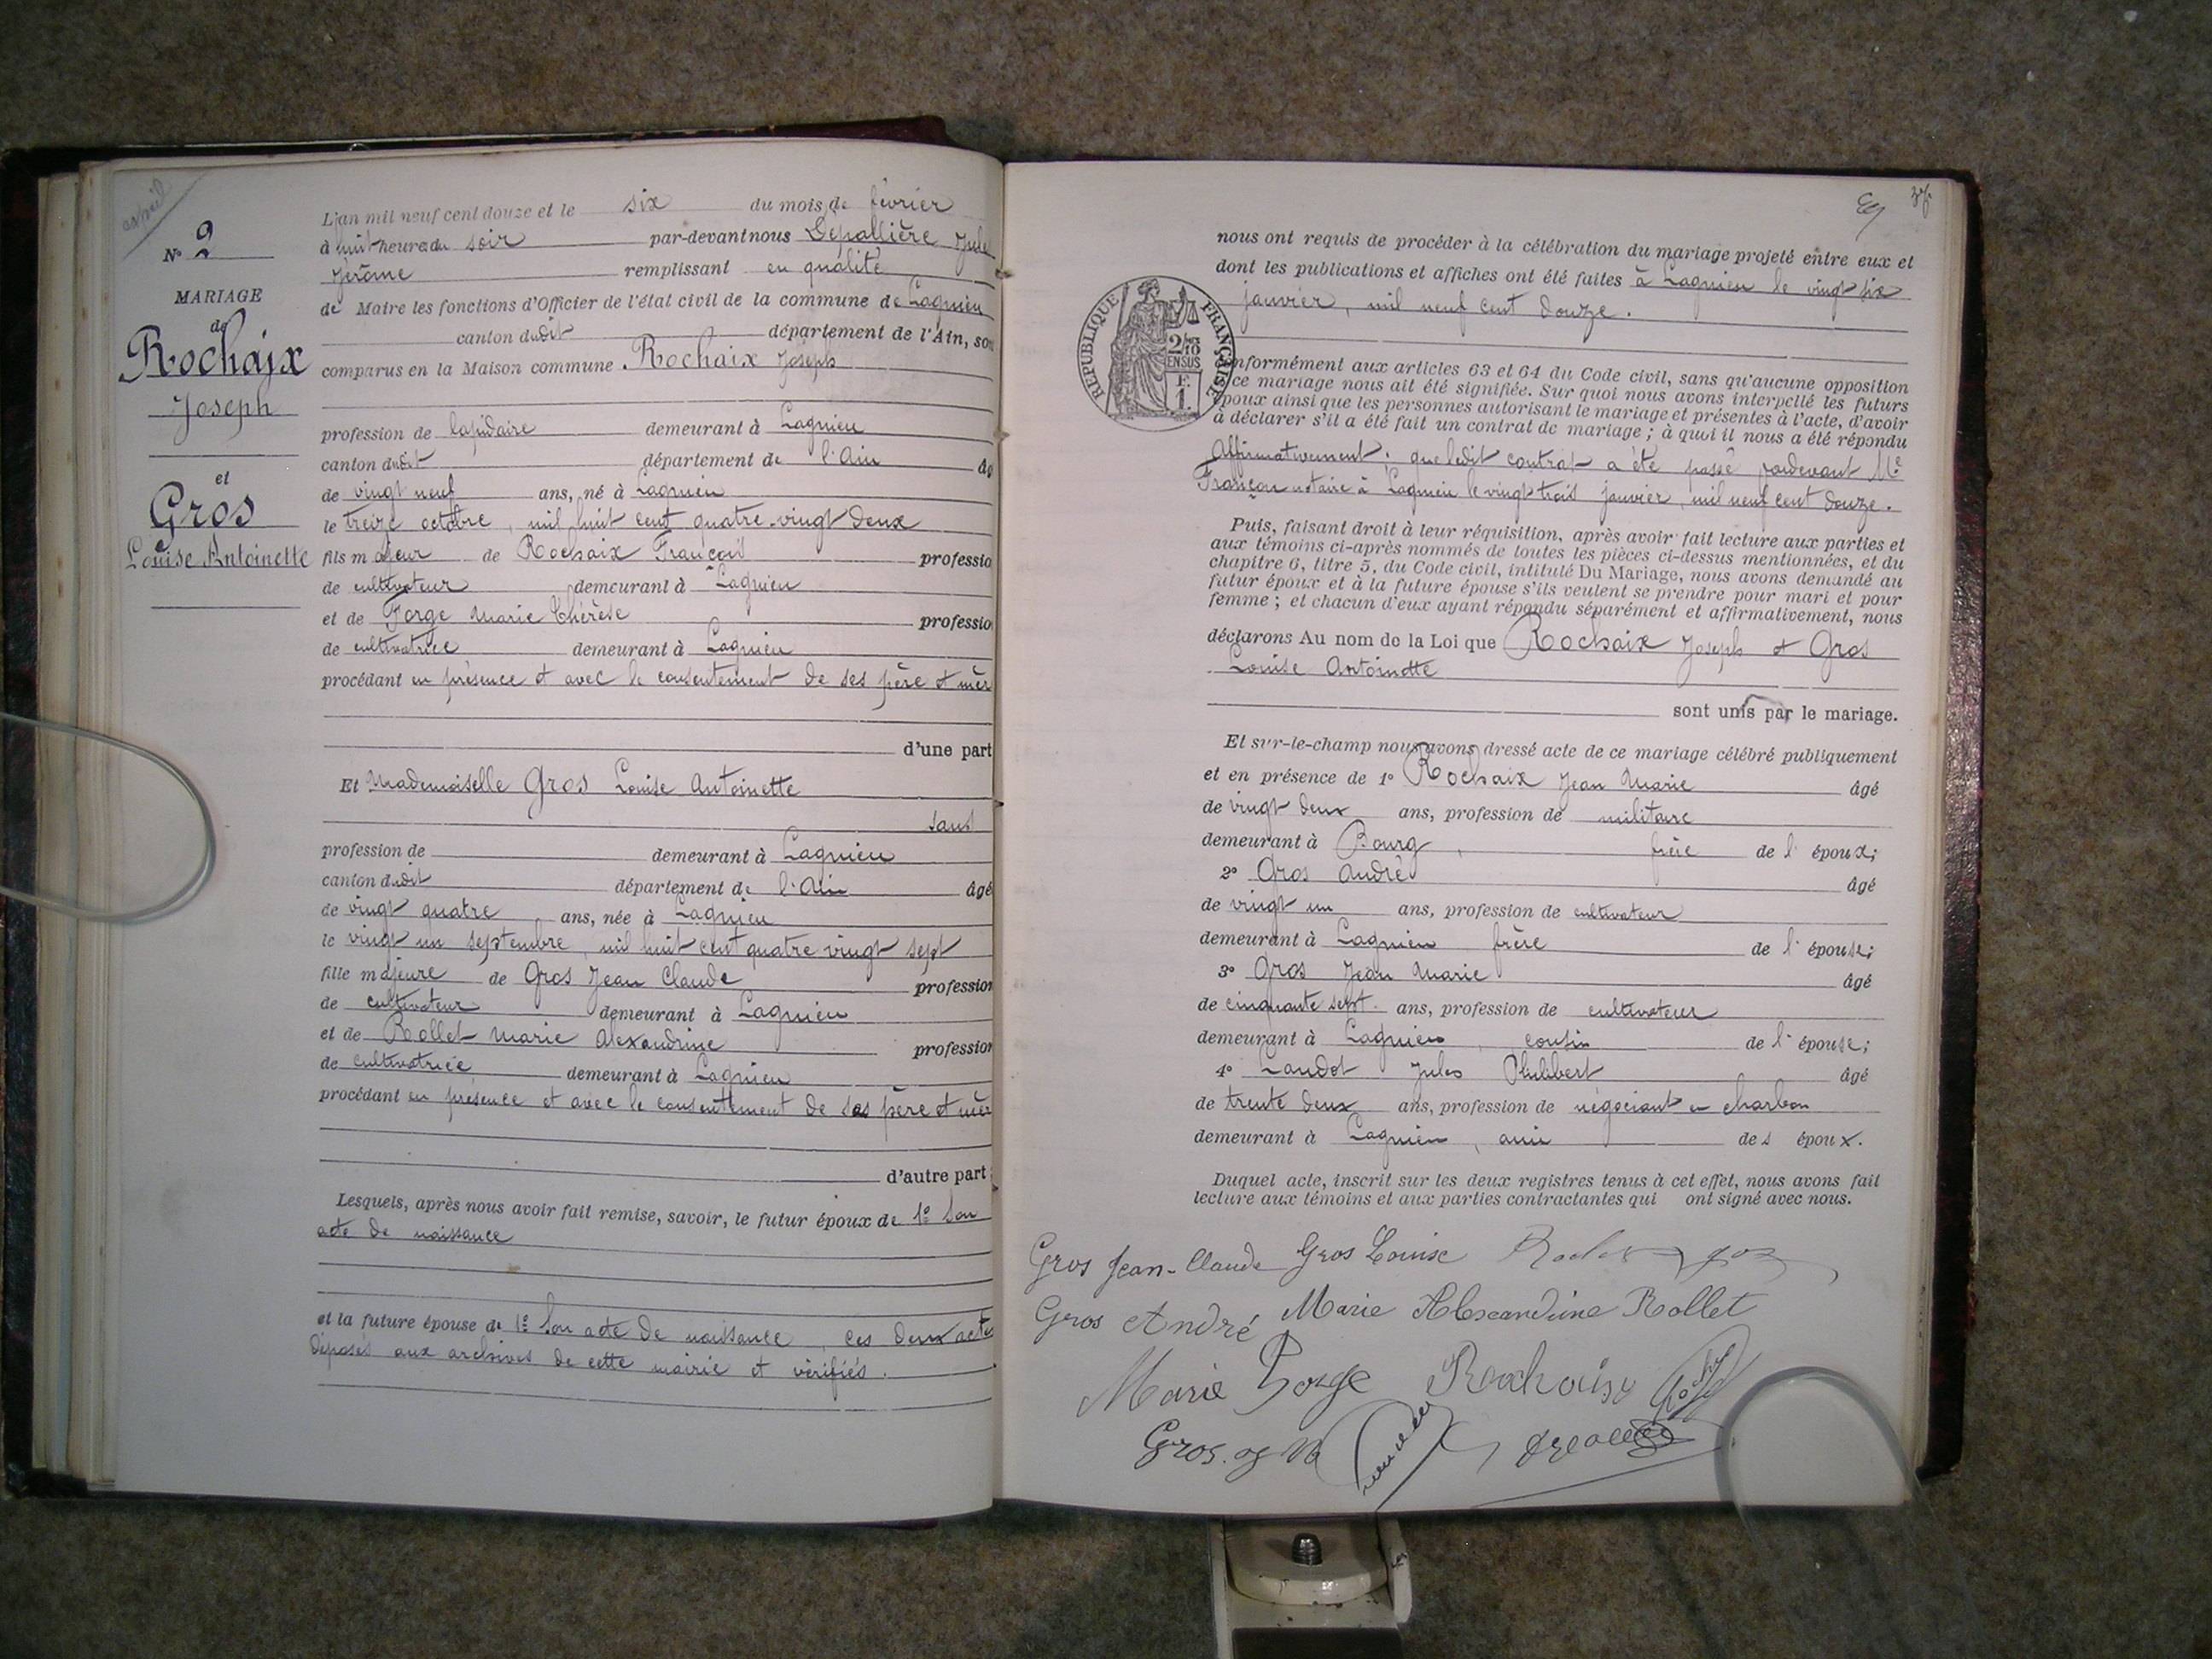 N° 2
MARIAGE
de
Rochaix
Joseph
et
Gros
Louise Antoinette
L'an mil neuf cent douze et le six du mois de février
à huit heures du soir par-devant nous Lépallière Jule
Jérôme remplissant en qualité
de Maire les fonctions d'Officier de l'état civil de la commune de Lagnieu
canton dudit département de l'Ain, son
comparus en la Maison commune. Rochaix Joseph
profession de lapidaire demeurant à Lagnieu
canton dudit département de l'Ain âg
de vingt neuf ans, né à Lagnieu
le treize octobre, mil huit cent quatre-vingt deux
fils majeur de Rochaix François professio
de cultivateur demeurant à Lagnieu
et de Forge Marie Thérèse professio
de cultivatrice demeurant à Lagnieu
procédant en présence et avec le consentement de ses père et mèr
d'une part
Et Mademoiselle Gros Louise Antoinette
sans
profession de demeurant à Lagnieu
canton dudit département de l'Ain âgé
de vingt quatre ans, née à Lagnieu
le vingt un septembre, mil huit cent quatre vingt sept
fille majeure de Gros Jean Claude profession
de cultivateur demeurant à Lagnieu
et de Rollet Marie Alexandrine profession
de cultivatrice demeurant à Lagnieu
procédant en présence et avec le consentement de ses père et mèr
d'autre part:
Lesquels, après nous avoir fait remise, savoir, le futur époux de 1° Son
acte de naissance
et la future épouse de 1° Son acte de naissance, ces deux actes
déposés aux archives de cette mairie et vérifiés.
nous ont requis de procéder à la célébration du mariage projeté entre eux et
dont les publications et affiches ont été faites à Lagnieu le vingt six
janvier, mil neuf cent douze.
REPUBLIQUE FRANÇAISE
2/10
EN SUS
F.
1.
onformément aux articles 63 et 64 du Code civil, sans qu'aucune opposition
ce mariage nous ait été signifiée. Sur quoi nous avons interpellé les futurs
époux ainsi que les personnes autorisant le mariage et présentes à l'acte, d'avoir
à déclarer s'il a été fait un contrat de mariage; à quoi il nous a été répondu
Affirmativement; que ledit contrat a été passé pardevant Me
Françon notaire à Lagnieu le vingt trois janvier, mil neuf cent douze.
Puis, faisant droit à leur réquisition, après avoir fait lecture aux parties et
aux témoins ci-après nommés de toutes les pièces ci-dessus mentionnées, et du
chapitre 6, titre 5, du Code civil, intitulé Du Mariage, nous avons demandé au
futur époux et à la future épouse s'ils veulent se prendre pour mari et pour
femme; et chacun d'eux ayant répondu séparément et affirmativement, nous
déclarons Au nom de la Loi que Rochaix Joseph et Gros
Louise Antoinette
sont unis par le mariage.
Et sur-le-champ nous avons dressé acte de ce mariage célébré publiquement
et en présence de 1° Rochaix Jean Marie âgé
de vingt deux ans, profession de militaire
demeurant à Bourg, frère de l'époux;
2° Gros André âgé
de vingt un ans, profession de cultivateur
demeurant à Lagnieu frère de l'épouse;
3° Gros Jean Marie âgé
de cinquante sept ans, profession de cultivateur
demeurant à Lagnieu, cousin de l'épouse;
4° Landot Jules Philibert âgé
de trente deux ans, profession de négociant en charbon
demeurant à Lagnieu, ami des époux.
Duquel acte, inscrit sur les deux registres tenus à cet effet, nous avons fait
lecture aux témoins et aux parties contractantes qui ont signé avec nous.
Gros Jean-Claude Gros Louise
Gros André Marie Alexandrine Rollet
Marie Forge Rochaix
Gros